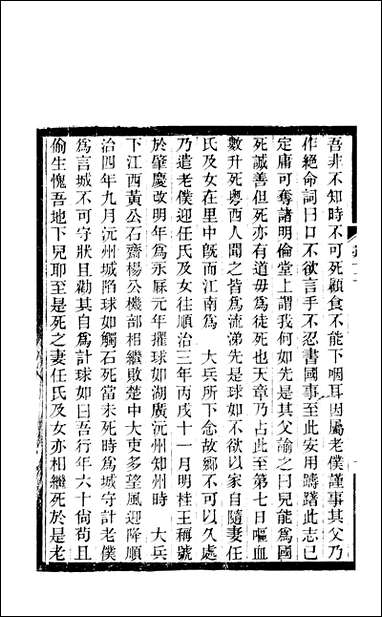 吾非不知時不可死顧食不能下咽耳因屬老僕謹事其父乃
作絕命詞曰口不欲言手不忍書國事至此安用躊躇此志已
定庸可奪諸明倫堂上謂我何如先是其父諭之曰兒能爲國
死誠善但死亦有道毋爲徒死也天章乃占此至第七日嘔血
數升死粵西人聞之皆爲流涕先是球如不欲以家自隨妻任
氏及女在里中旣而江南爲　大兵所下念故鄉不可以久處
乃遣老僕迎任氏及女往順治三年丙戌十一月明桂王稱號
於肇慶改明年爲永厤元年擢球如湖廣沅州知州時　大兵
下江西黃公石齋楊公機部相繼敗楚中大吏多望風迎降順
治四年九月沅州城陷球如觸石死當未死時爲城守計老僕
爲言城不可守狀且勸其自爲計球如曰吾行年六十尙苟且
偷生愧吾地下兒耶至是死之妻任氏及女亦相繼死於是老